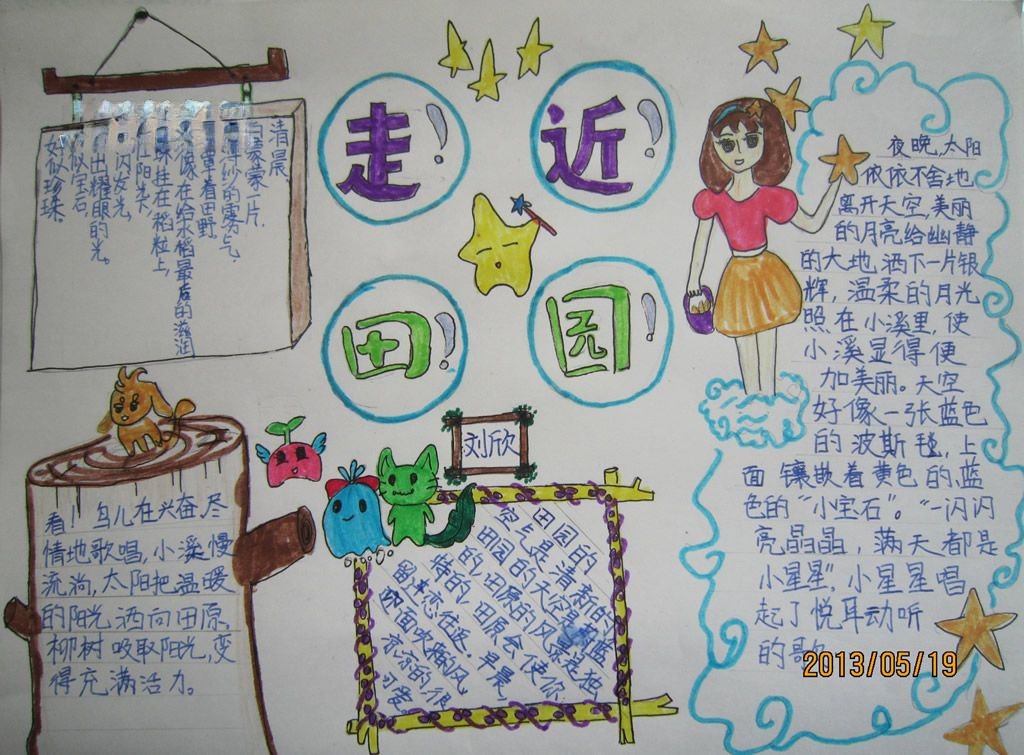 走近
田园
刘欣
清晨
白蒙蒙一片,
草着田野,
好像在给水稻最后的滋润
珠挂在稻粒上,
太阳光下
闪发光,
出耀眼的光。
似宝石,
好似珍珠。
看!鸟儿在兴奋、尽
情地歌唱,小溪慢
流淌,太阳把温暖
的阳光洒向田原,
柳树吸取阳光,变
得充满活力。
田园的
空气是清新的
田园的天空是蓝
的,田原的风景是独
特的,田原会使你
留来恋往返。早晨
迎面吹拂的风
亦你的很
可贵
夜晚,太阳
依依不舍地
离开天空,美丽
的月亮给幽静
的大地洒下一片银
辉,温柔的月光
照在小溪里,使
小溪显得便
加美丽。天空
好像一张蓝色
的波斯毯,上
面镶嵌着黄色的、蓝
色的“小宝石”。“一闪闪
亮晶晶,满天都是
小星星”,小星星唱
起了悦耳动听
的歌
2013/05/19